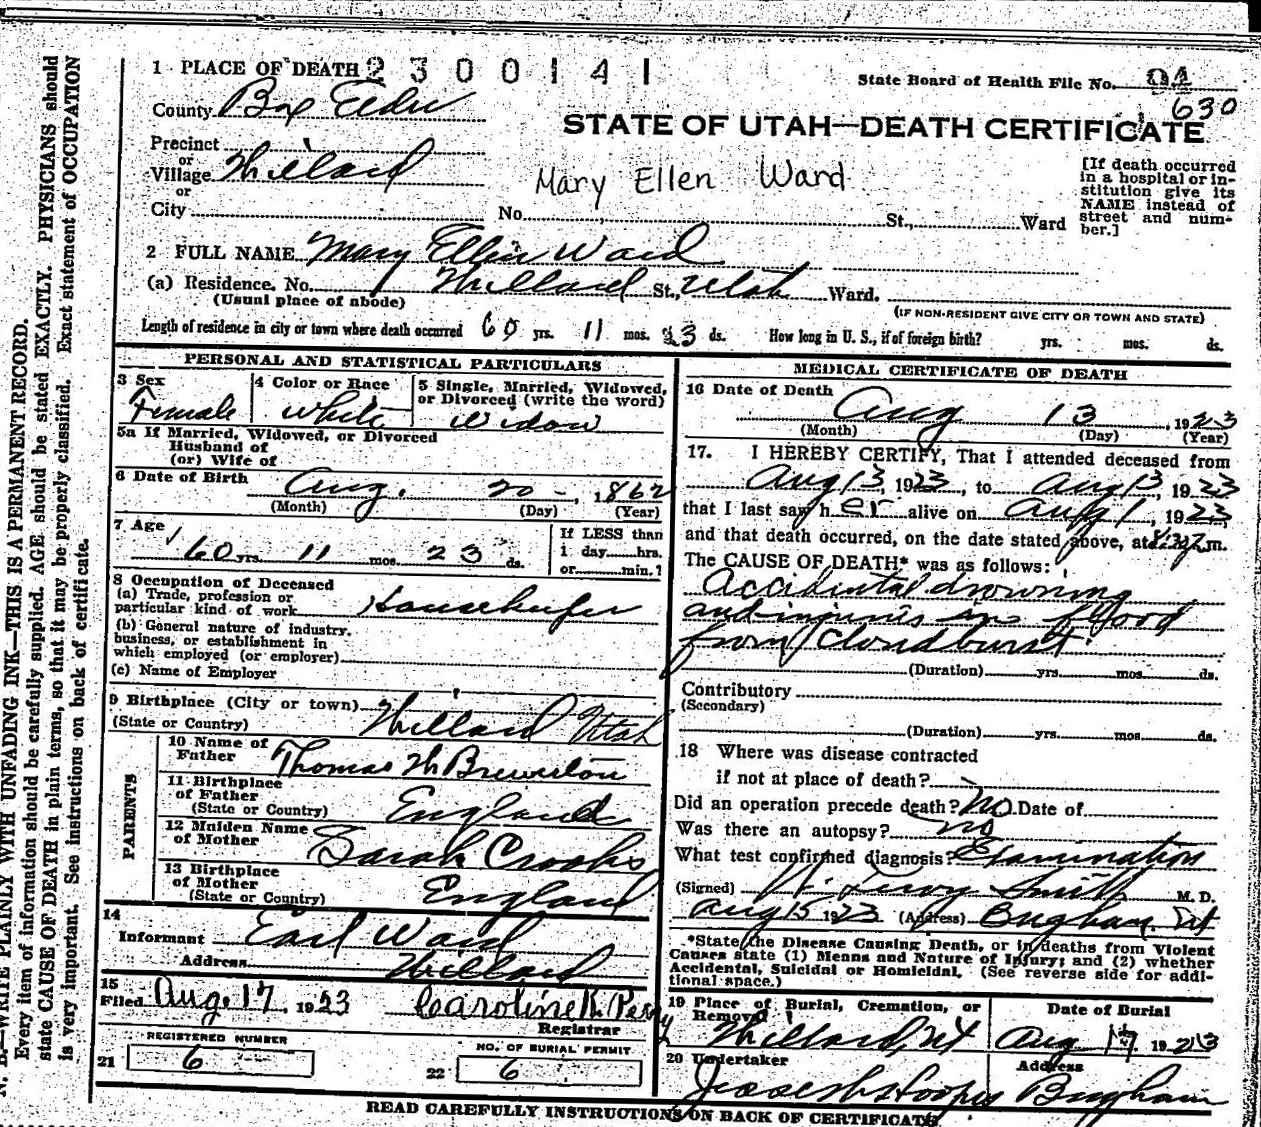 1 PLACE OF DEATH 2 3 0 0 1 4 1
State Board of Health File No. 94
630
County Box Elder
STATE OF UTAH—DEATH CERTIFICATE
Precinct
or
Village Willard
or
City
Mary Ellen Ward
No. St., Ward
[If death occurred
in a hospital or in-
stitution give its
NAME instead of
street and num-
ber.]
2 FULL NAME Mary Ellen Ward
(a) Residence. No. Willard St., Utah Ward.
(Usual place of abode)
(IF NON-RESIDENT GIVE CITY OR TOWN AND STATE)
Length of residence in city or town where death occurred 60 yrs. 11 mos. 23 ds. How long in U. S., if of foreign birth? yrs. mos. ds.
PERSONAL AND STATISTICAL PARTICULARS
3 Sex
Female
4 Color or Race
white
5 Single, Married, Widowed,
or Divorced (write the word)
Widow
5a If Married, Widowed, or Divorced
Husband of
(or) Wife of
6 Date of Birth Aug. 20, 1862
(Month) (Day) (Year)
7 Age
60 yrs. 11 mos. 23 ds.
If LESS than
1 day hrs.
or min.?
8 Occupation of Deceased
(a) Trade, profession or
particular kind of work Housekeeper
(b) General nature of industry,
business, or establishment in
which employed (or employer)
(c) Name of Employer
9 Birthplace (City or town) Willard Utah
(State or Country)
PARENTS
10 Name of
Father Thomas W Brewerton
11 Birthplace
of Father
(State or Country) England
12 Maiden Name
of Mother Sarah Crooks
13 Birthplace
of Mother
(State or Country) England
14
Informant Earl Ward
Address Willard
15
Filed Aug. 17 1923 Caroline K. Perry
Registrar
REGISTERED NUMBER
21 6
NO. OF BURIAL PERMIT
22 6
MEDICAL CERTIFICATE OF DEATH
16 Date of Death
Aug 13, 1923
(Month) (Day) (Year)
17. I HEREBY CERTIFY, That I attended deceased from
Aug 13, 1923, to Aug 13, 1923
that I last saw her alive on Aug 1, 1923,
and that death occurred, on the date stated above, at m.
The CAUSE OF DEATH* was as follows:
Accidental drowning
and injuries in flood
from cloudburst.
(Duration) yrs. mos. ds.
Contributory
(Secondary)
(Duration) yrs. mos. ds.
18 Where was disease contracted
if not at place of death?
Did an operation precede death? No Date of
Was there an autopsy? no
What test confirmed diagnosis? Examination
(Signed) Smith M. D.
Aug 15 1923 (Address) Brigham. Ut
*State the Disease Causing Death, or in deaths from Violent
Causes state (1) Means and Nature of Injury; and (2) whether
Accidental, Suicidal or Homicidal. (See reverse side for addi-
tional space.)
19 Place of Burial, Cremation, or
Removal
Willard, Ut
Date of Burial
Aug 17 1923
20 Undertaker
Address
Brigham
READ CAREFULLY INSTRUCTIONS ON BACK OF CERTIFICATE
N. B.—WRITE PLAINLY WITH UNFADING INK—THIS IS A PERMANENT RECORD.
Every item of information should be carefully supplied. AGE should be stated EXACTLY. PHYSICIANS should
state CAUSE OF DEATH in plain terms, so that it may be properly classified. Exact statement of OCCUPATION
is very important. See instructions on back of certificate.